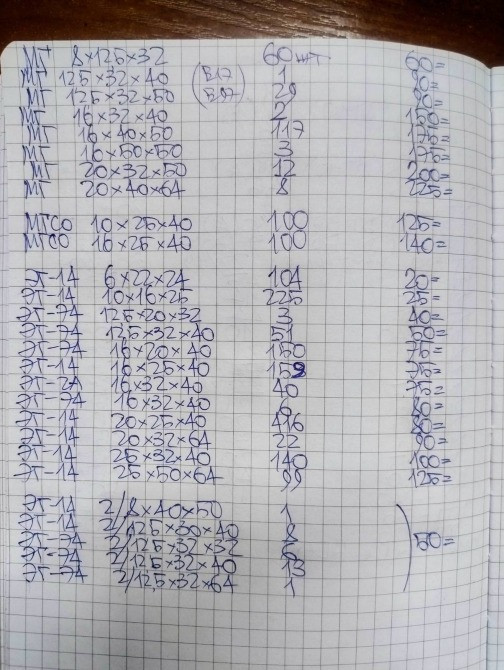 МГ 8×125×32 60 шт 60=
МГ 125×32×40 (В17) 1 90=
МГ 125×32×50 29 90=
МГ 16×32×40 2 150=
МГ 16×40×50 117 175=
МГ 16×50×50 3 175=
МГ 20×32×50 12 200=
МГ 20×40×64 8 225=
МГСО 10×25×40 100 125=
МГСО 16×25×40 100 140=
ЭГ-14 6×22×24 104 20=
ЭГ-14 10×16×25 225 25=
ЭГ-74 125×20×32 3 40=
ЭГ-74 125×32×40 51 50=
ЭГ-74 16×20×40 150 75=
ЭГ-14 16×25×40 159 75=
ЭГ-2А 16×32×40 40 75=
ЭГ-74 16×32×40 6 80=
ЭГ-14 20×25×40 416 80=
ЭГ-14 20×32×64 22 90=
ЭГ-14 25×32×40 140 100=
ЭГ-14 25×50×64 99 125=
ЭГ-14 2/8×40×50 1
ЭГ-14 2/125×30×40 8
ЭГ-74 2/125×32×32 6 50=
ЭГ-74 2/125×32×40 13
ЭГ-74 2/125×32×64 1